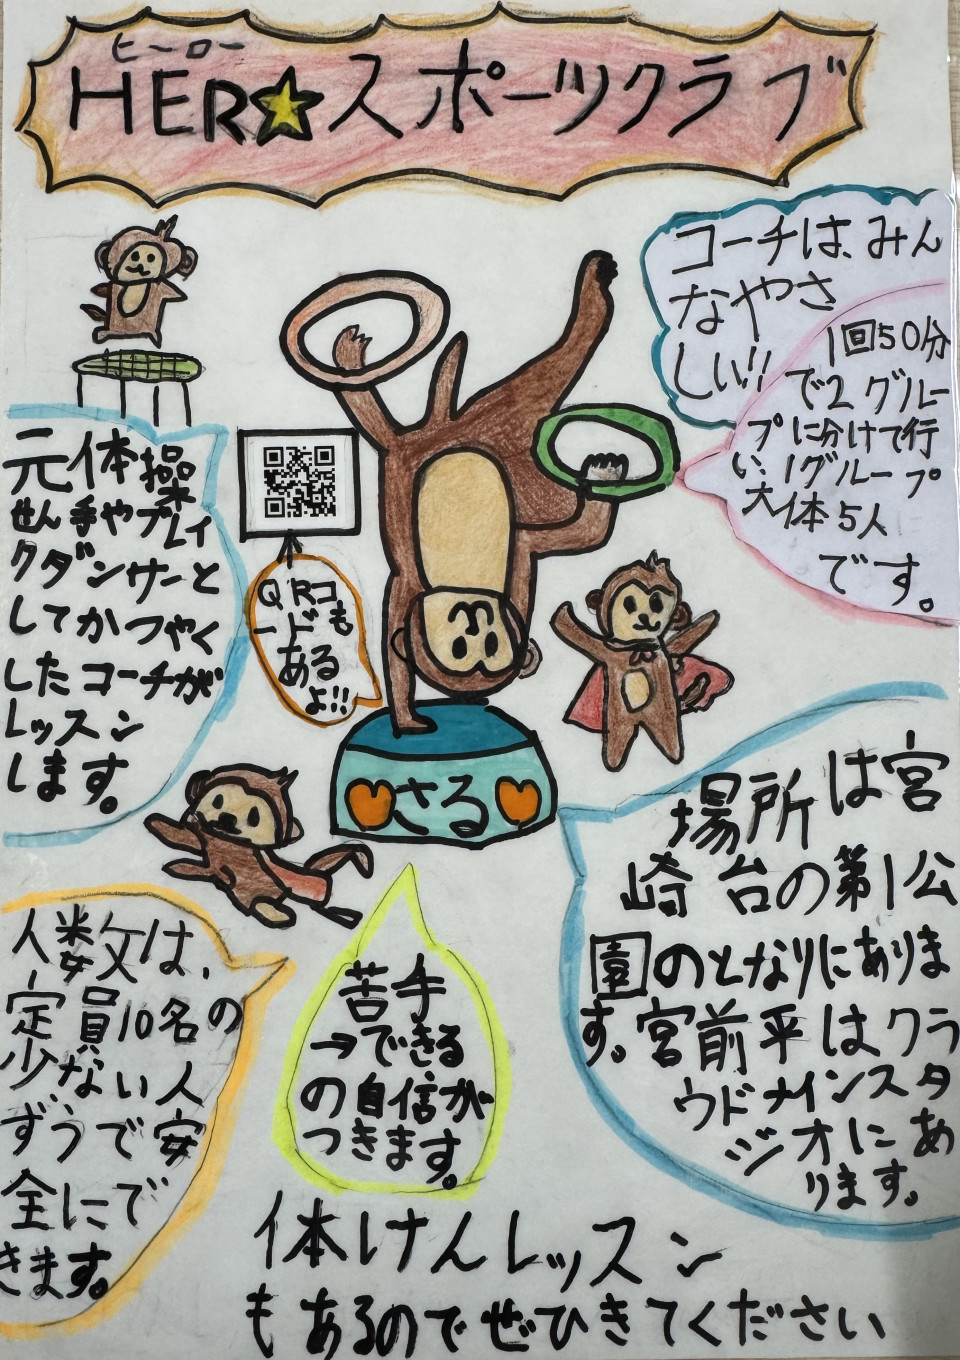 ヒーロー
HER★スポーツクラブ
コーチは、みん
なやさ
しい!!
1回50分
で2グルー
プに分けて行
い、1グループ
大体5人
です。
元体操
せん手やブレイ
クダンサーと
してかつやく
したコーチが
レッスン
します。
QRコ
ードも
ある
よ!!
さる
場所は宮
崎台の第1公
園のとなりにありま
す。宮前平はクラ
ウドナインスタ
ジオにあ
ります。
人数は、
定員10名の
少ない人
ずうで安
全にで
きます。
苦手
→できる
の自信が
つきます。
体けんレッスン
もあるのでぜひきてください